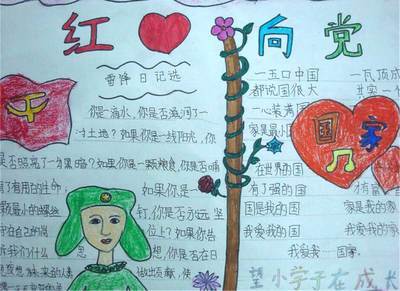 红 向党
雷锋日记选
你是滴水,你是否滋润了一
寸土地?如果你是一线阳光,你
是否照亮了一分黑暗?如果你是一颗粮食,你是否哺
育了有用的生命;如果你是一
颗最小的螺丝钉,你是否永远坚
守在自己的岗位上?如果你告
诉我们什么思想,你是否在日
做出贡献,使
一五口中国
都说国很大
一心装满国
家是最小
在世界的国
有了强的国
国是我的国
我爱我的国
我爱我国家
一瓦顶成
其实一个
家是我的家
我爱我的家
国家
望小学子在成长